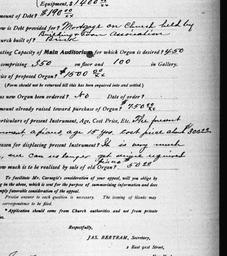 Equipment? $1400 00/xx
mount of Debt? $190 00/xx
w is Debt provided for? Mortgage on Church held by
Building & Loan Association
urch built of? Brick
ating Capacity of Main Auditorium for which Organ is desired? 450
comprising 350 on floor and 100 in Gallery.
rice of proposed Organ? $1500 00/xx
(Form should not be returned till this has been inquired into and stated.)
as new Organ been ordered? No Date of order?
mount already raised toward purchase of Organ? $750 00/xx
articulars of present Instrument, Age, Cost Price, Etc. The present
a piano age 15 yrs. cost price about
eason for displacing present Instrument? It is very much
can no longer get
ow much is to be realised by sale of old Organ? 50 00
To facilitate Mr. Carnegie's consideration of your appeal, will you oblige by
ing in the above, which is sent for the purpose of summarising information and does
imply favorable consideration of the appeal.
Precise answer to each question is necessary. The issuing of blanks may
correspondence to be filed.
* Application should come from Church authorities and not from private
Respectfully,
JAS. BERTRAM, Secretary,
2 East 91st Street,